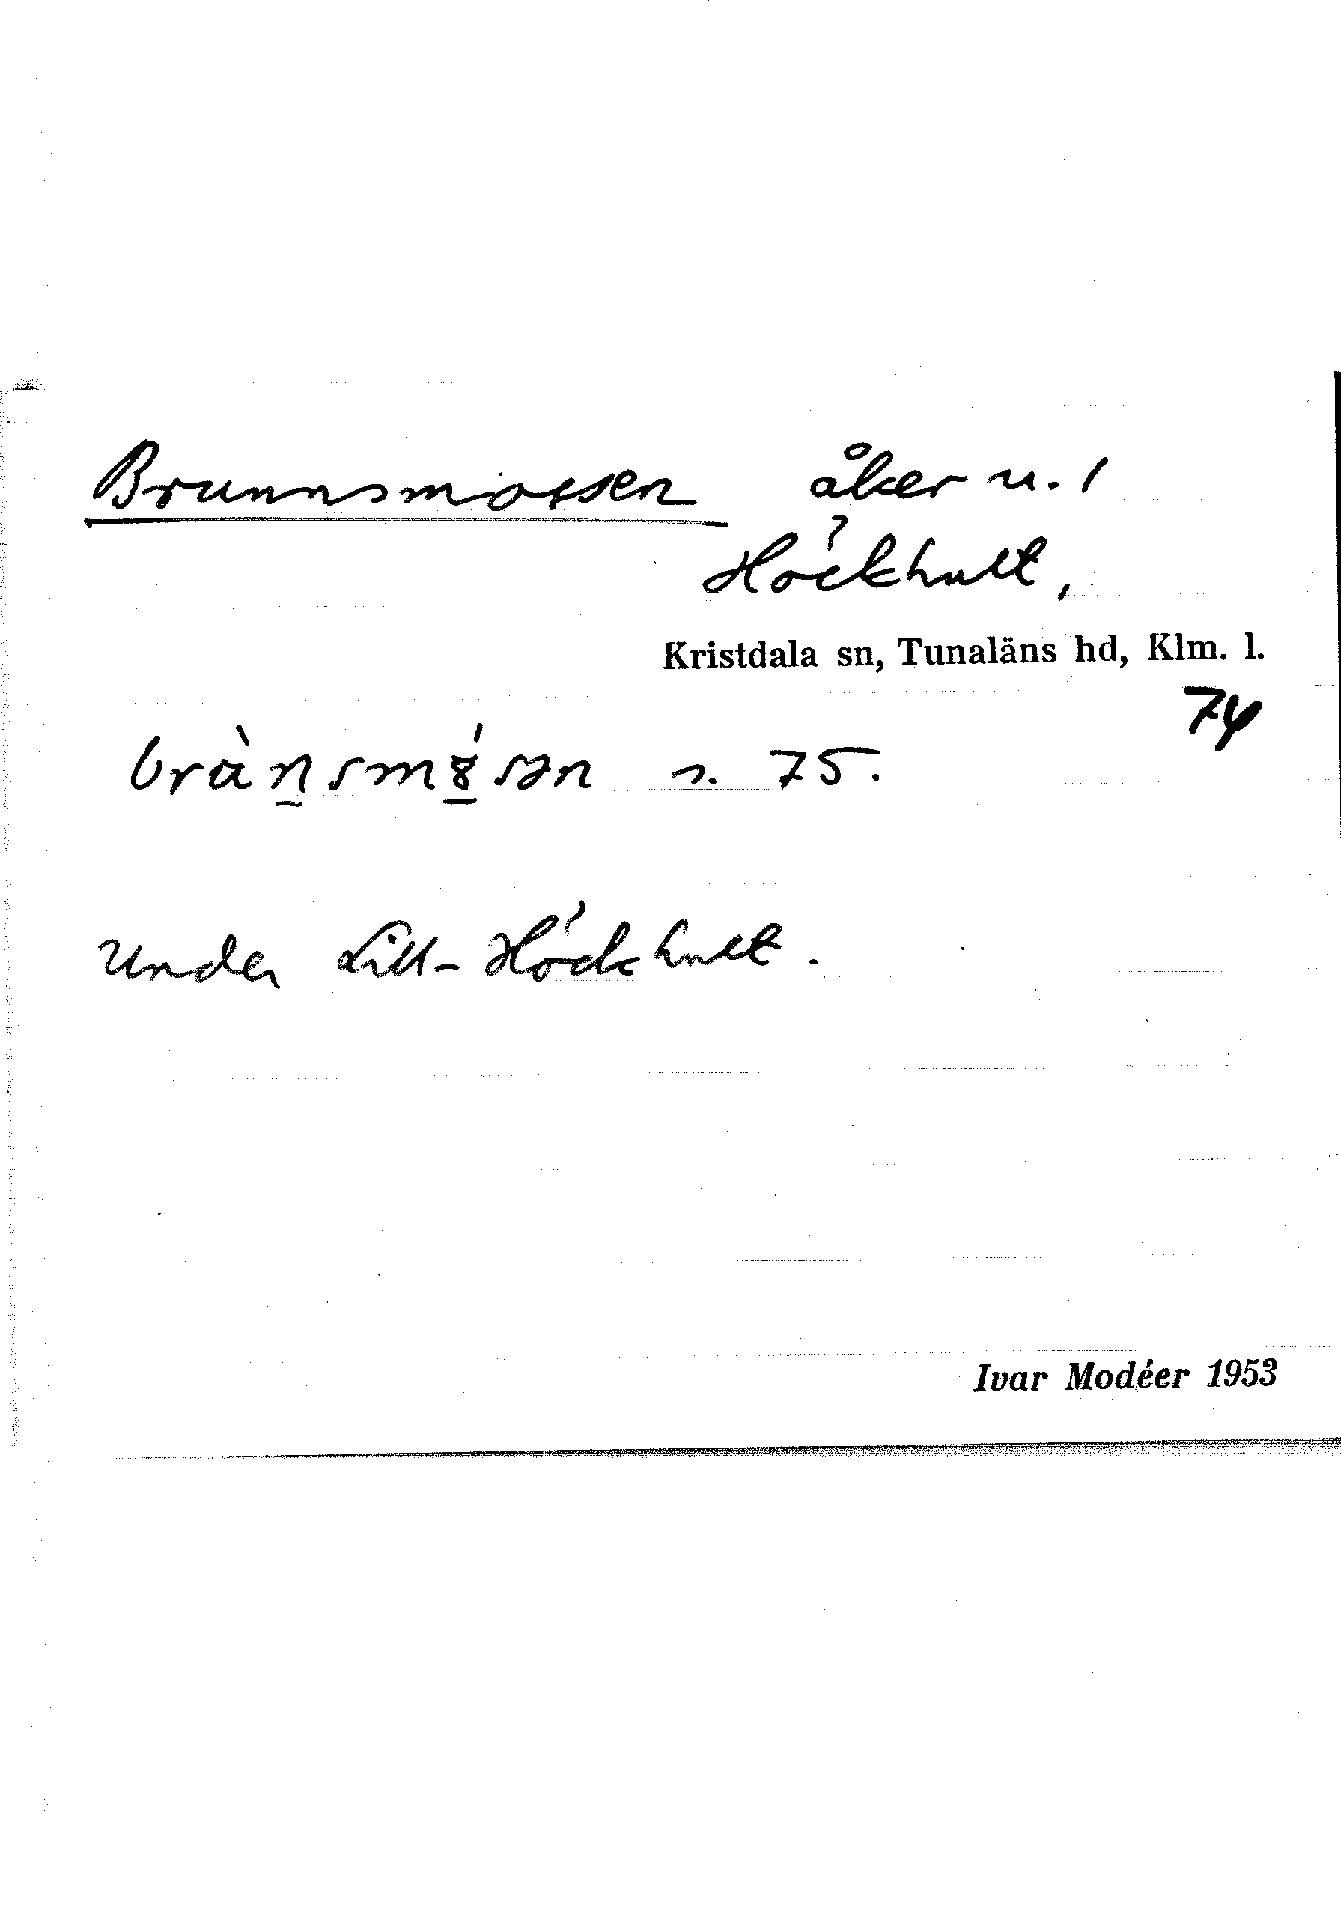 Brunnsmossen åker u. 1
Höckhult,
Kristdala sn, Tunaläns hd, Klm. l.
74
s. 75.
Under Lill-Höckhult.
Ivar Modéer 1953